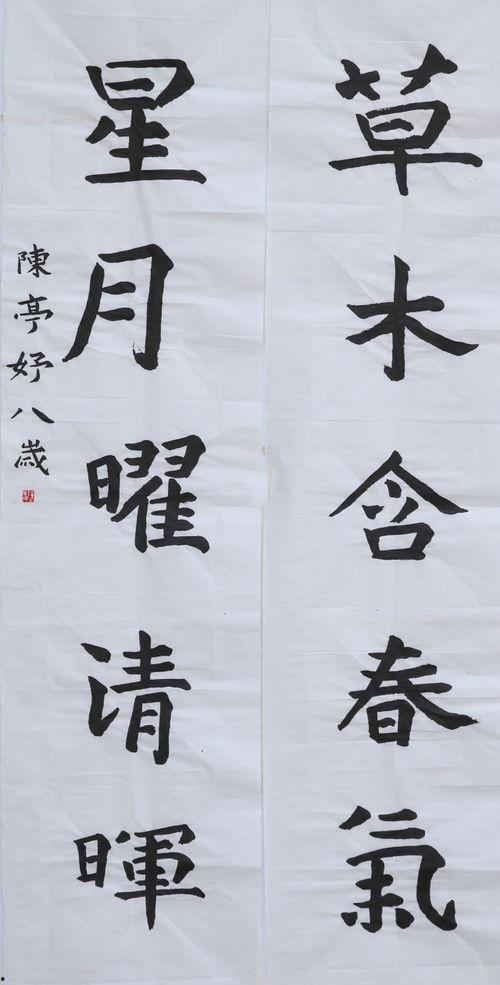 草木含春氣
星月曜清暉
陳亭妤八歲